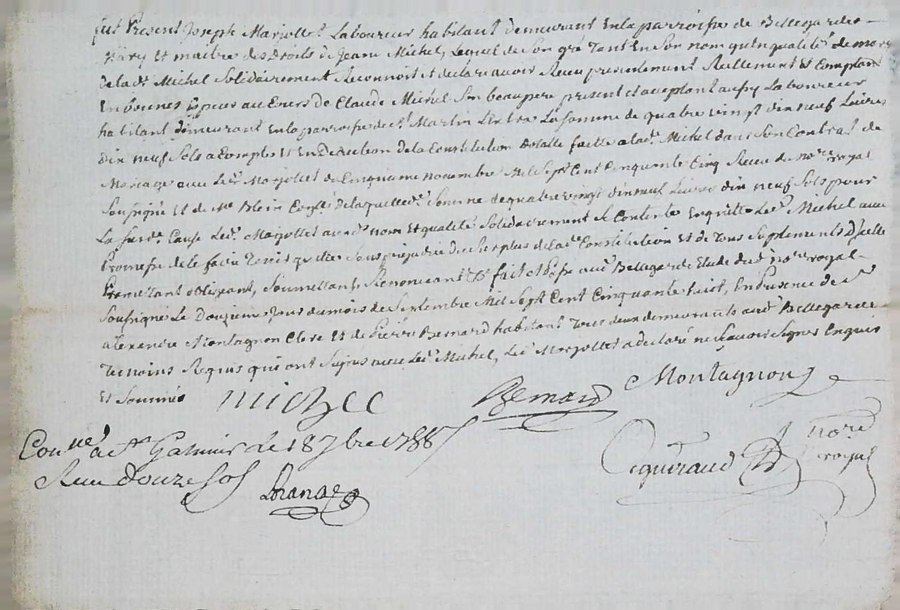 fut Present Joseph Marjollet Laboureur habitant demeurant En la parroisse de Bellegarde
Mary Et maitre des Droits de Jeanne Michel, Lequel de Son gré Tant En Son nom qu'En qualité de mary
de la de. Michel Solidairement Reconnoit et declare avoir Receu presentement Reellement Et Comptant
En bonnes Especes au Cours de Claude Michel Son beaupere present et acceptant aussy Laboureur
habitant demeurant En la parroisse de St. Martin La Somme de quatre vingt dix neuf Livres
dix neuf Sols a Compte Et En Deduction de la Constitution Dotalle faitte a la de. Michel dans Son Contrat de
Mariage avec Led. Marjollet du Cinquieme novembre Mil Sept Cent Cinquante Cinq Receu du nore. royal
Soussigné Et de Me Blein de laquelle de. Somme de quatre vingt dix neuf Livres dix neuf Sols pour
La Susd. Cause Led. Marjollet aud. nom Et qualité Solidairement Se Contente En quitte Led. Michel avec
Promesse de le faire Tenir quitte Sans prejudice du Surplus de la de. Constitution Et de Tous Supplements D'icelle
Promettant obligeant, Soumettant Renoncant & fait Et passé aud. Bellegarde Etude dud. nore. royal
Soussigné Le Douzieme Jour du mois de Septembre Mil Sept Cent Cinquante huit, En presence de Sr.
alexandre Montagnon Clerc Et de Pierre Bernard habitant Tous deux demeurants aud. Bellegarde
Temoins Requis qui ont Signés avec Led. Michel, Led. Marjollet a declaré ne Scavoir Signer Enquis
Et Sommé
Michel Bernard Montagnon
Conllé a St. Galmier Le 18 7bre 1758
Receu Douze Sols
nore. royal